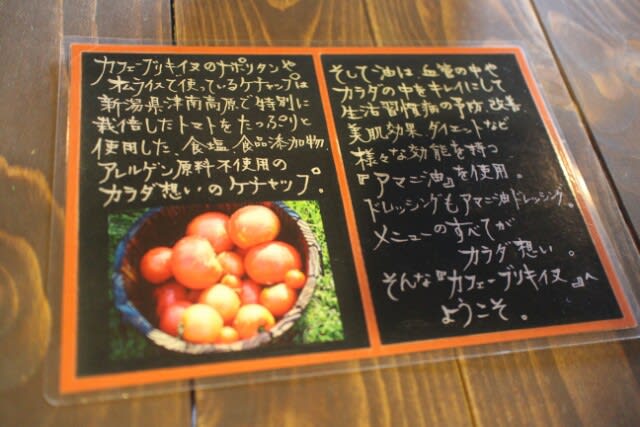 カフェーブリキイヌのナポリタンや
オムライスで使っているケチャップは
新潟県津南高原で特別に
栽培したトマトをたっぷりと
使用した、食塩、食品添加物、
アレルゲン原料不使用の
カラダ想いのケチャップ。
そして油は、血管の中や
カラダの中をキレイにして
生活習慣病の予防、改善
美肌効果、ダイエットなど
様々な効能を持つ
『アマニ油』を使用。
ドレッシングもアマニ油ドレッシング。
メニューのすべてが
カラダ想い。
そんな『カフェーブリキイヌ』へ
ようこそ。